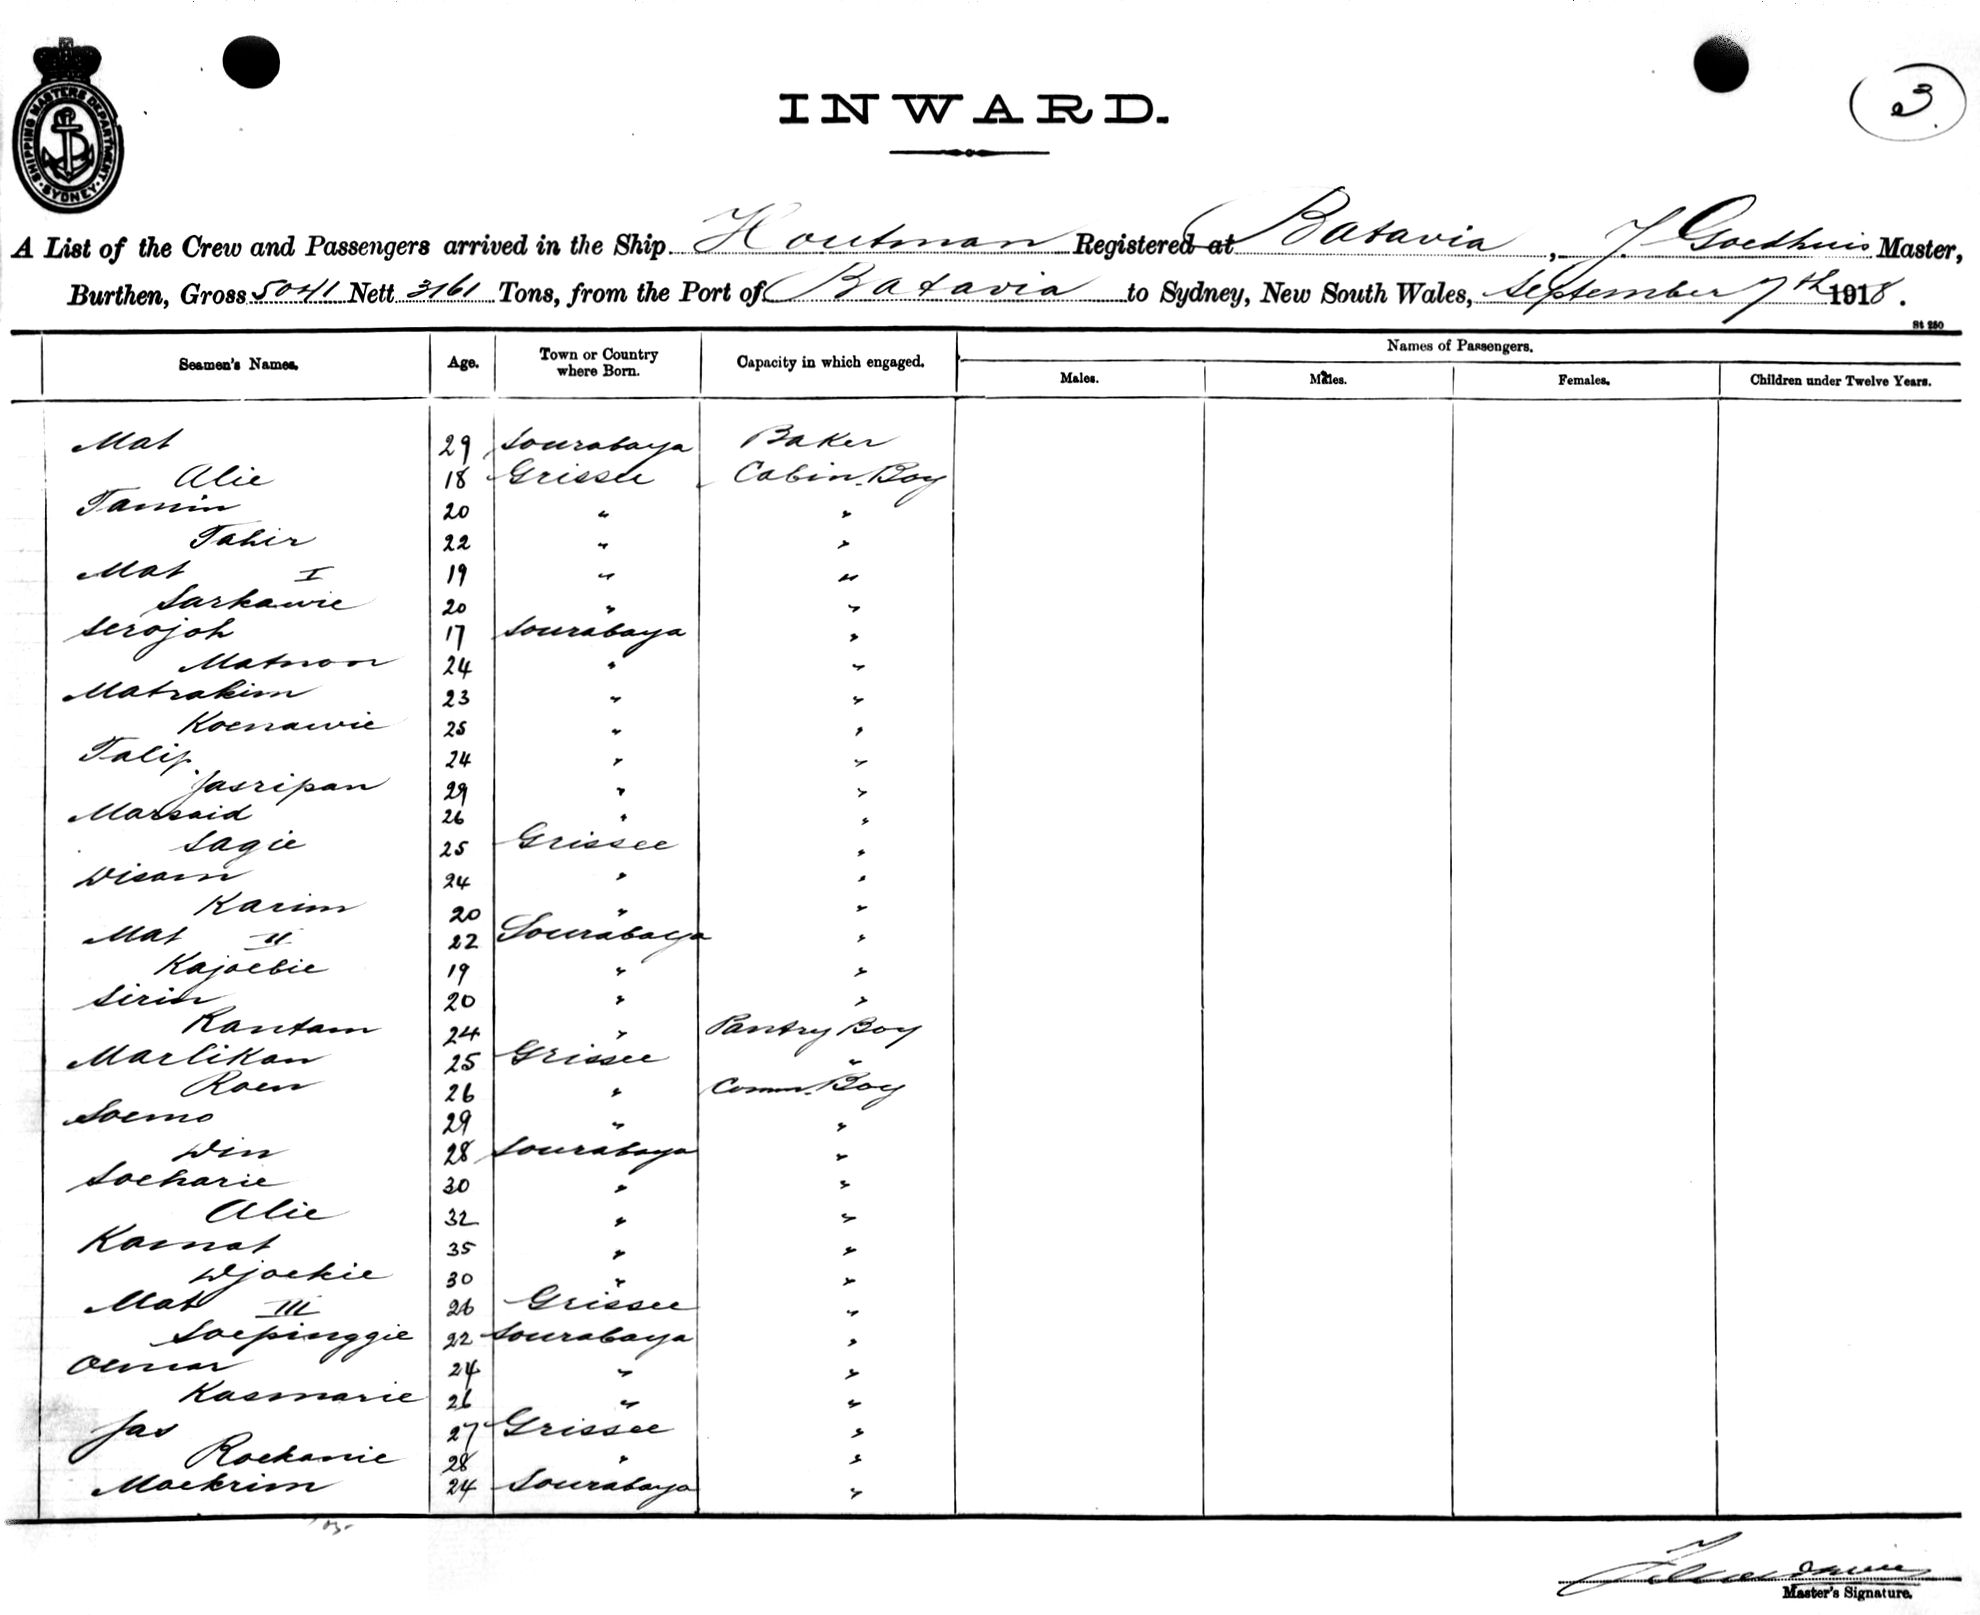 SHIPPING MASTERS DEPARTMENT
SYDNEY
INWARD.
3
A List of the Crew and Passengers arrived in the Ship Houtman Registered at Batavia, J. Goedhuis Master,
Burthen, Gross 5041 Nett 3161 Tons, from the Port of Batavia to Sydney, New South Wales, September 7th 1918.
St 250
Seamen's Names. Age. Town or Country where Born. Capacity in which engaged. Names of Passengers.
Males. Males. Females. Children under Twelve Years.
Mat 29 Sourabaya Baker
Alie 18 Grissee Cabin Boy
Tamin 20 " "
Tahir 22 " "
Mat I 19 " "
Sarkawie 20 " "
Serojoh 17 Sourabaya "
Matnon 24 " "
Matrakim 23 " "
Koenawie 25 " "
Talip 24 " "
Jasripan 29 " "
Marsaid 26 " "
Sagie 25 Grissee "
Disam 24 " "
Karim 20 " "
Mat II 22 Sourabaya "
Kajoebie 19 " "
Sirin 20 " "
Kantam 24 " Pantry Boy
Marlikan 25 Grissee "
Roen 26 " Comm. Boy
Soemo 29 " "
Din 28 Sourabaya "
Soeharie 30 " "
Alie 32 " "
Kamat 35 " "
Djoekie 30 " "
Mat III 26 Grissee "
Soepinggie 22 Sourabaya "
Oemar 24 " "
Kasmarie 26 " "
Jas 27 Grissee "
Roekanie 28 " "
Moekrim 24 Sourabaya "
Master's Signature.